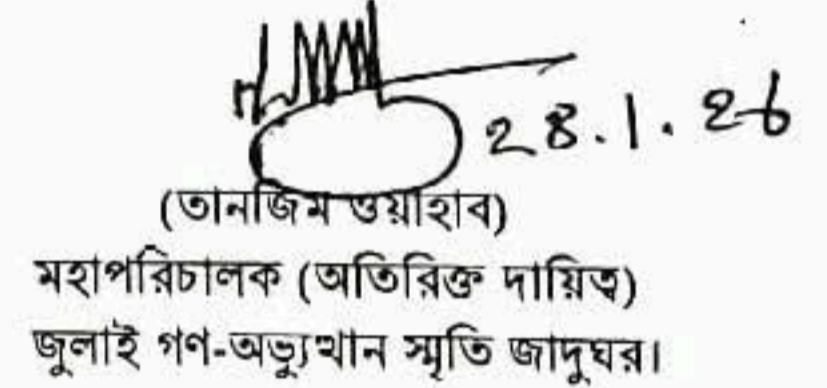 28.1.26
(তানজিম ওয়াহাব)
মহাপরিচালক (অতিরিক্ত দায়িত্ব)
জুলাই গণ-অভ্যুত্থান স্মৃতি জাদুঘর।